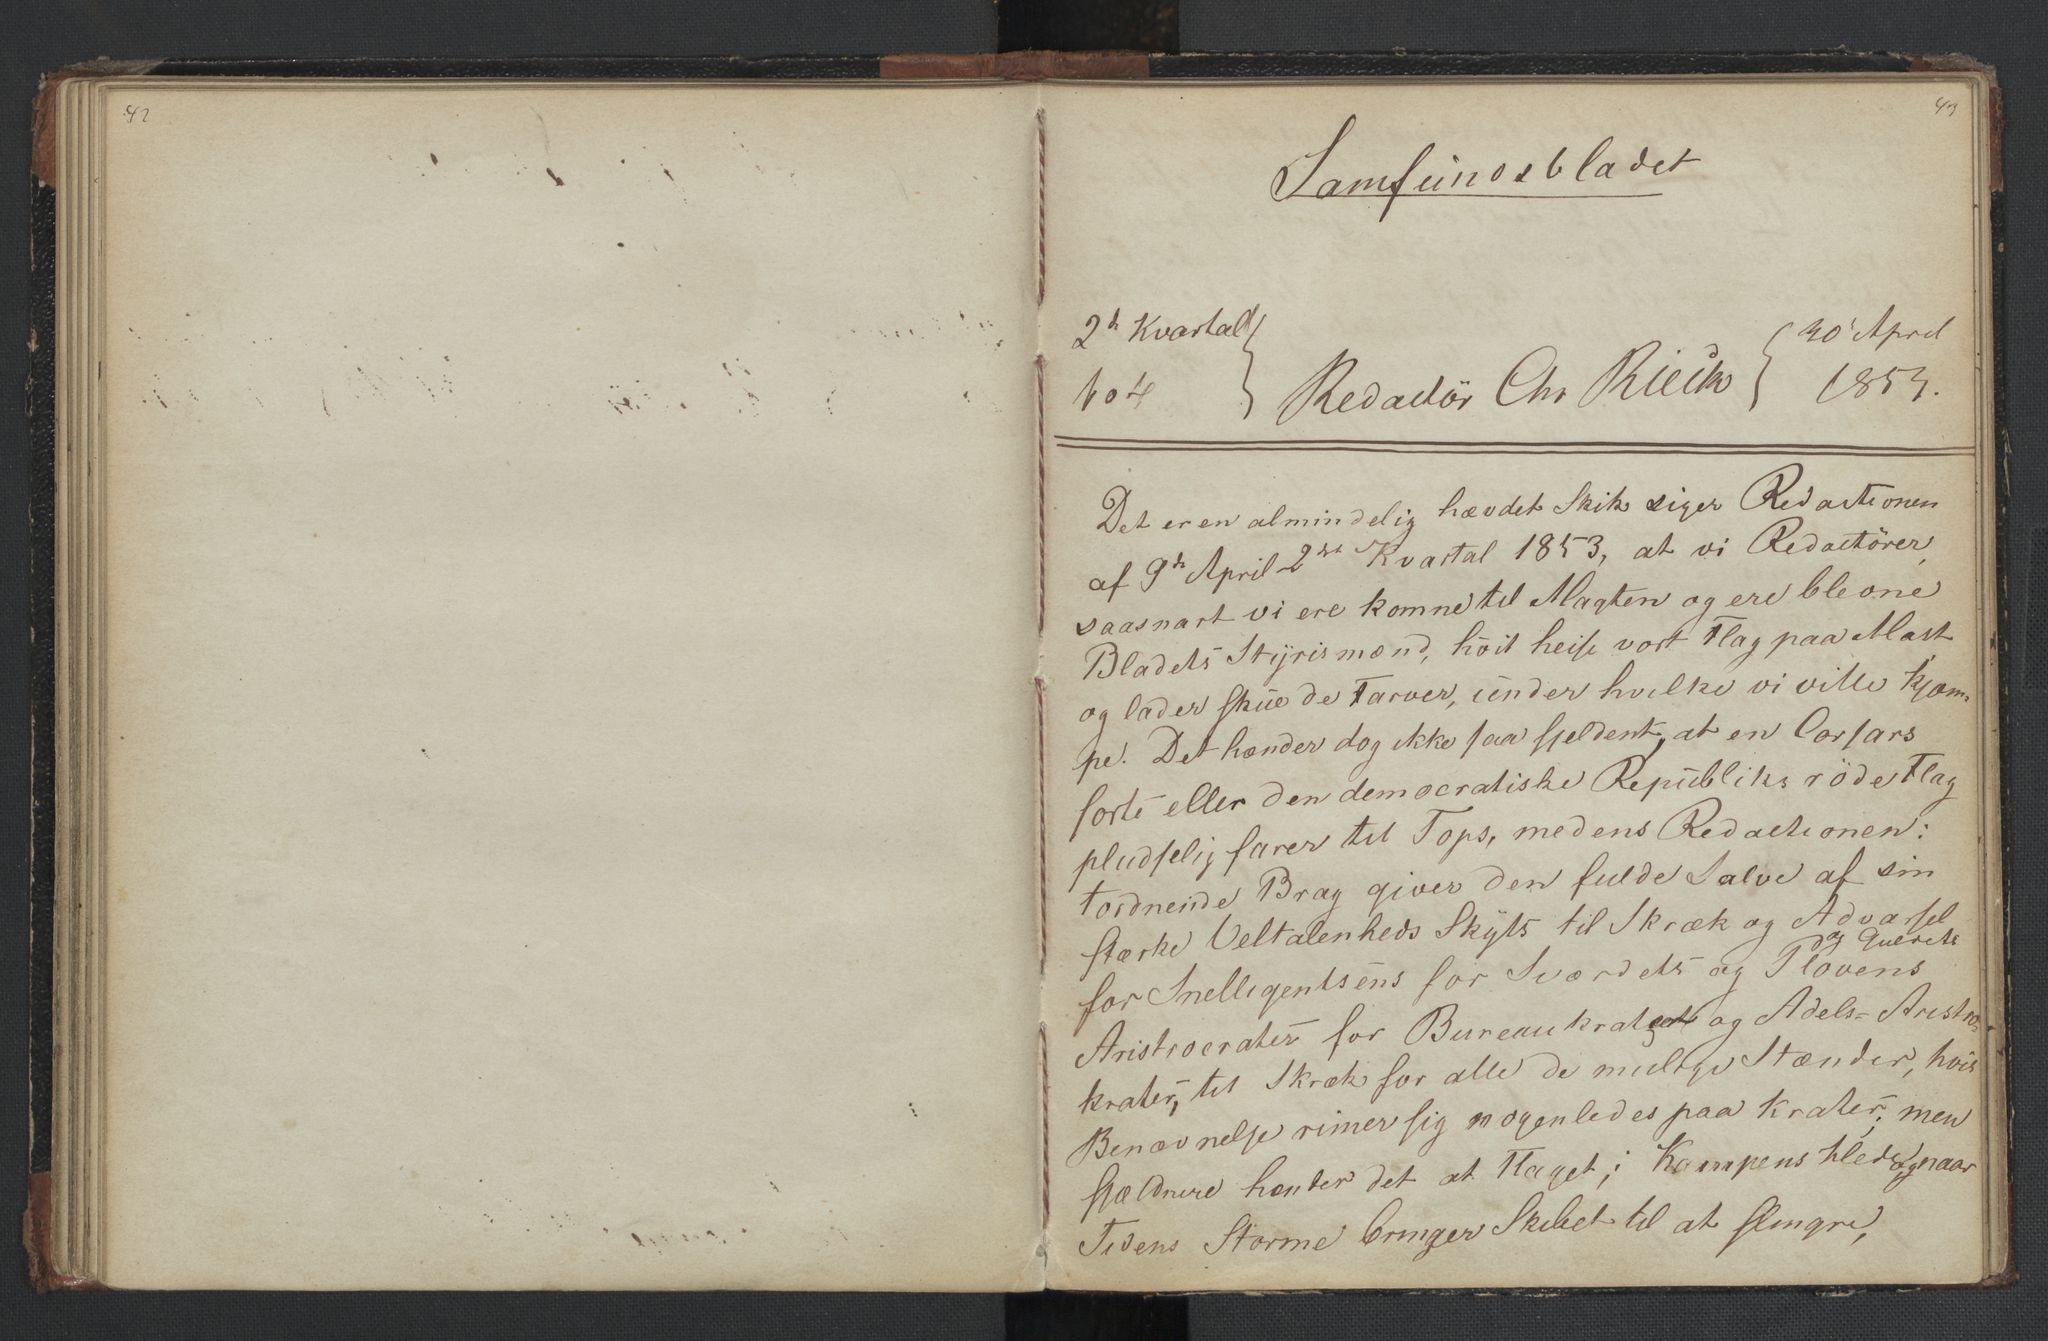 42
43
Samfundsbladet
2d Kvartal
30 April
No 4
Redactör Chr Rieck
1853.
Det er en almindelig hævdet Skik siger Redactionen
af 9de April 2det Kvartal 1853, at vi Redactörer,
saasnart vi ere komne til Magten og ere blevne
Bladets Styrismænd, höit heise vort Flag paa Mast
og lader skue de Farver, under hvilke vi ville kjæm-
pe. Det hænder dog ikke saa sjeldent, at en Corsars
sorte eller den democratiske Republiks röde Flag
pludselig farer til Tops, medens Redactionen:
tordnende Brag giver den fulde Salve af sin
stærke Veltalenheds Skyts til Skræk og Advarsel
for Inelligentsens for Sværdets og Plovens og
Aristocrater for Bureaukrater og Adels-Aristo-
krater, til Skræk for alle de mulige Stænder, hvis
Benævnelse rimer sig nogenledes paa krater; men
sjældnere hænder det at Flaget, i Kampens Hede og naar
Tidens Storme bringer Skibet til at slingre,